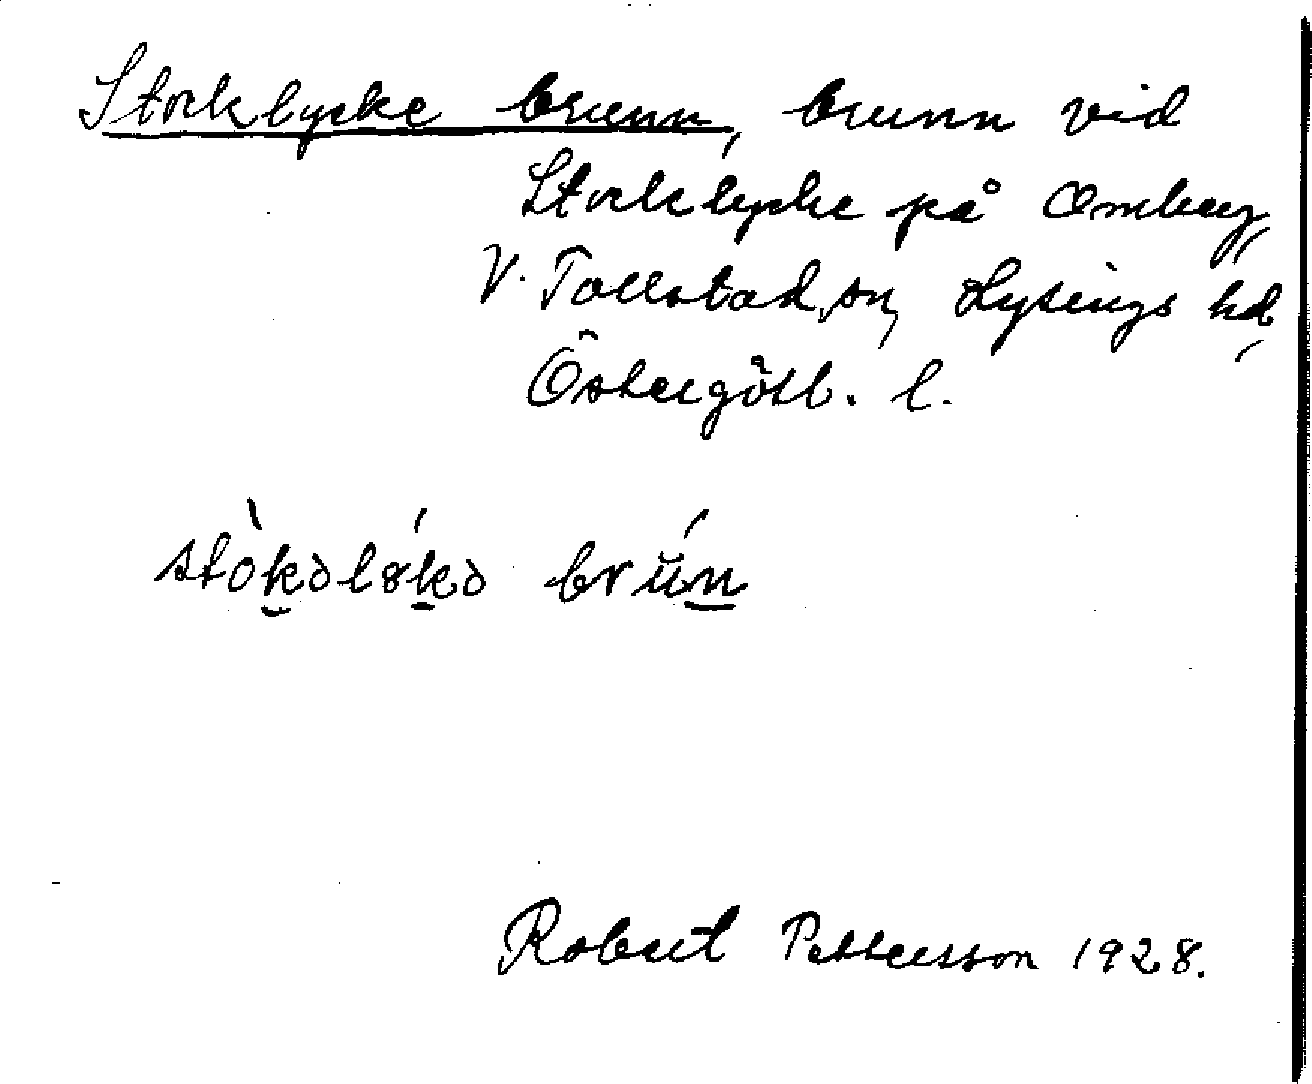 Stocklycke brunn, brunn vid
Stocklycke på Omberg,
V. Tollstad sn, Lysings hd,
Östergötl. l.
stòkəløkə brún
Robert Pettersson 1928.